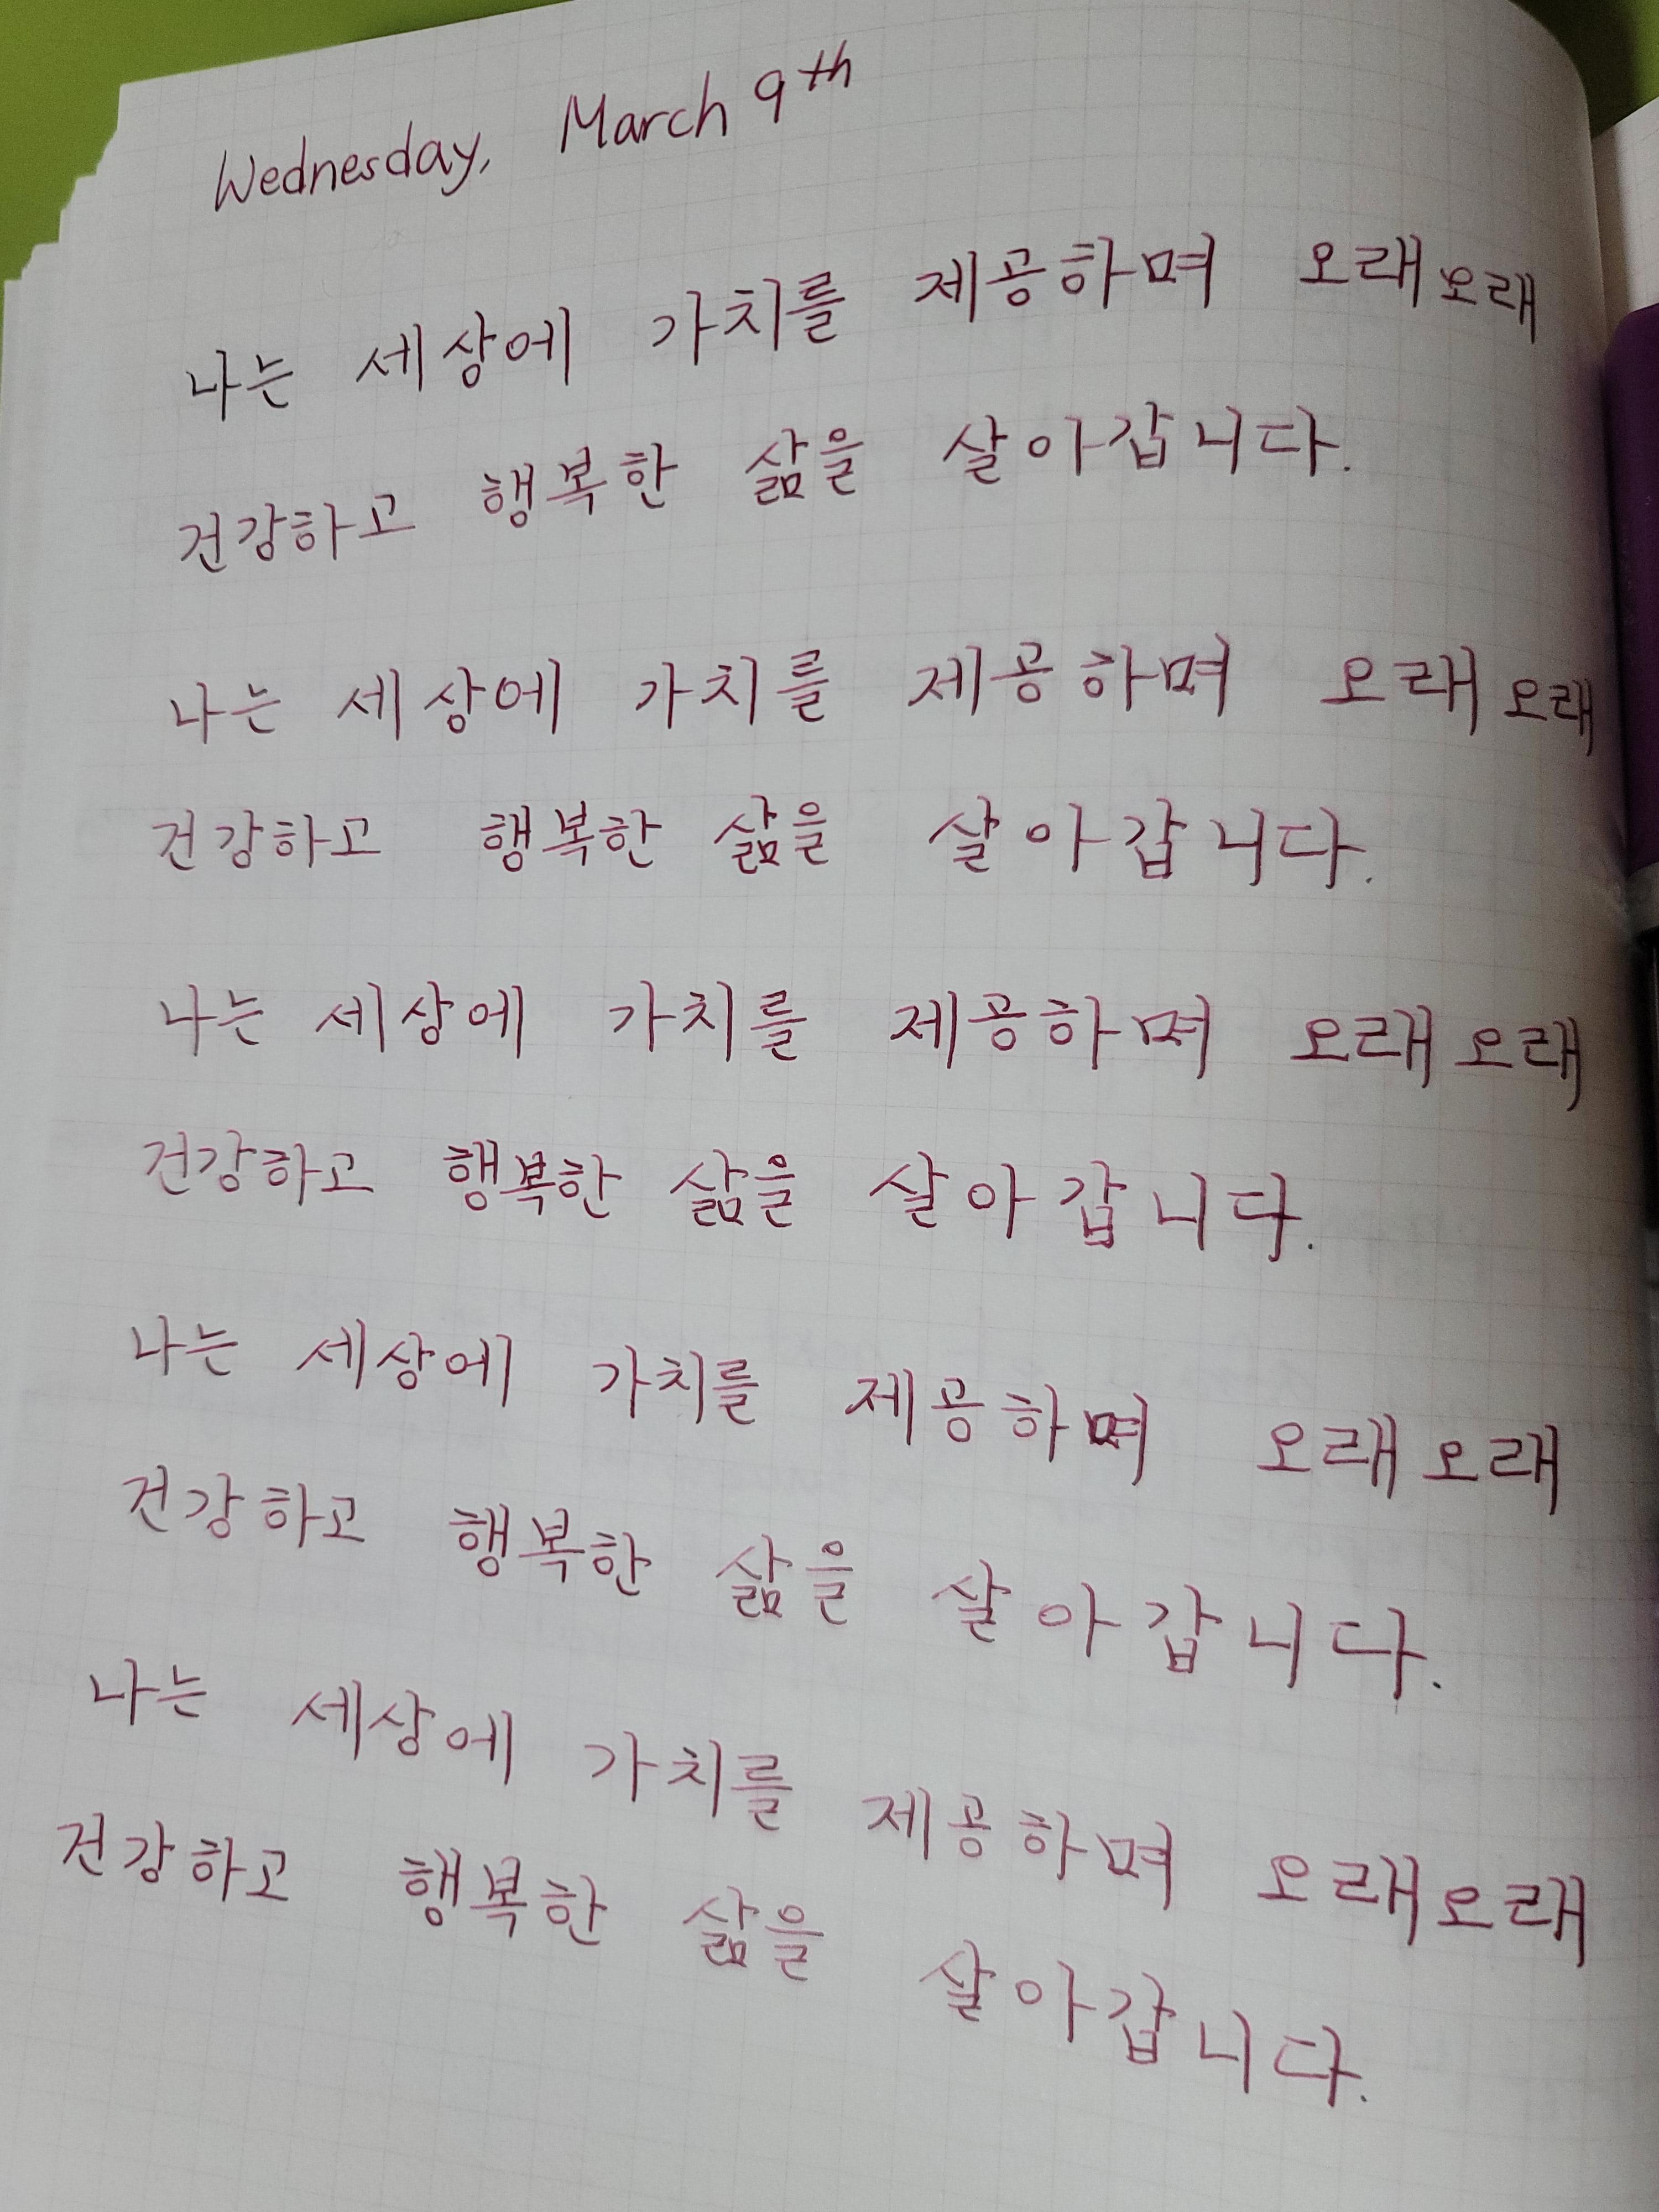 Wednesday, March 9th
나는 세상에 가치를 제공하며 오래오래
건강하고 행복한 삶을 살아갑니다.
나는 세상에 가치를 제공하며 오래오래
건강하고 행복한 삶을 살아갑니다.
나는 세상에 가치를 제공하며 오래오래
건강하고 행복한 삶을 살아갑니다.
나는 세상에 가치를 제공하며 오래오래
건강하고 행복한 삶을 살아갑니다.
나는 세상에 가치를 제공하며 오래오래
건강하고 행복한 삶을 살아갑니다.